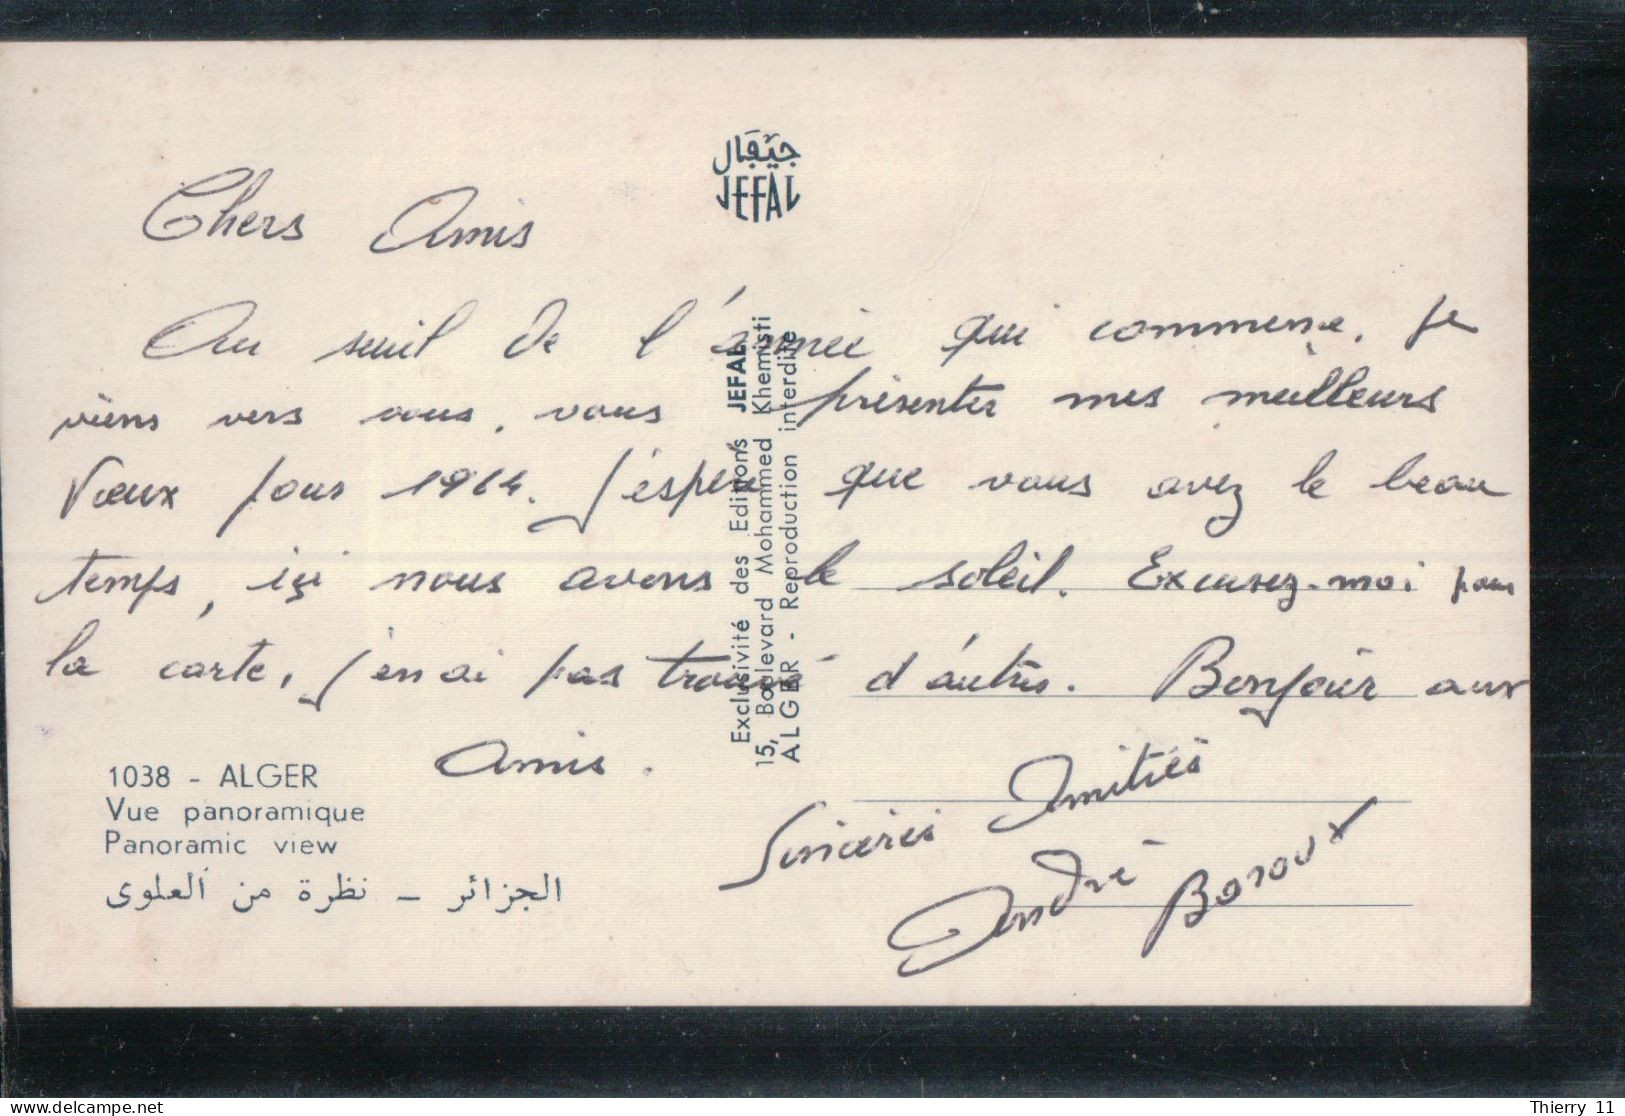 جيفال
JEFAL
Chers Amis
Au seuil de l'année qui commence, je
viens vers vous, vous présenter mes meilleurs
Vœux pour 1964. J'espère que vous avez le beau
temps, içi nous avons le soleil. Excusez-moi pour
la carte, j'en ai pas trouvé d'autres. Bonjour aux
Amis.
Sincères Amitiés
André
Exclusivité des Editions JEFAL
15, Boulevard Mohammed Khemisti
ALGER - Reproduction interdite
1038 - ALGER
Vue panoramique
Panoramic view
الجزائر – نظرة من العلوى
Thierry 11